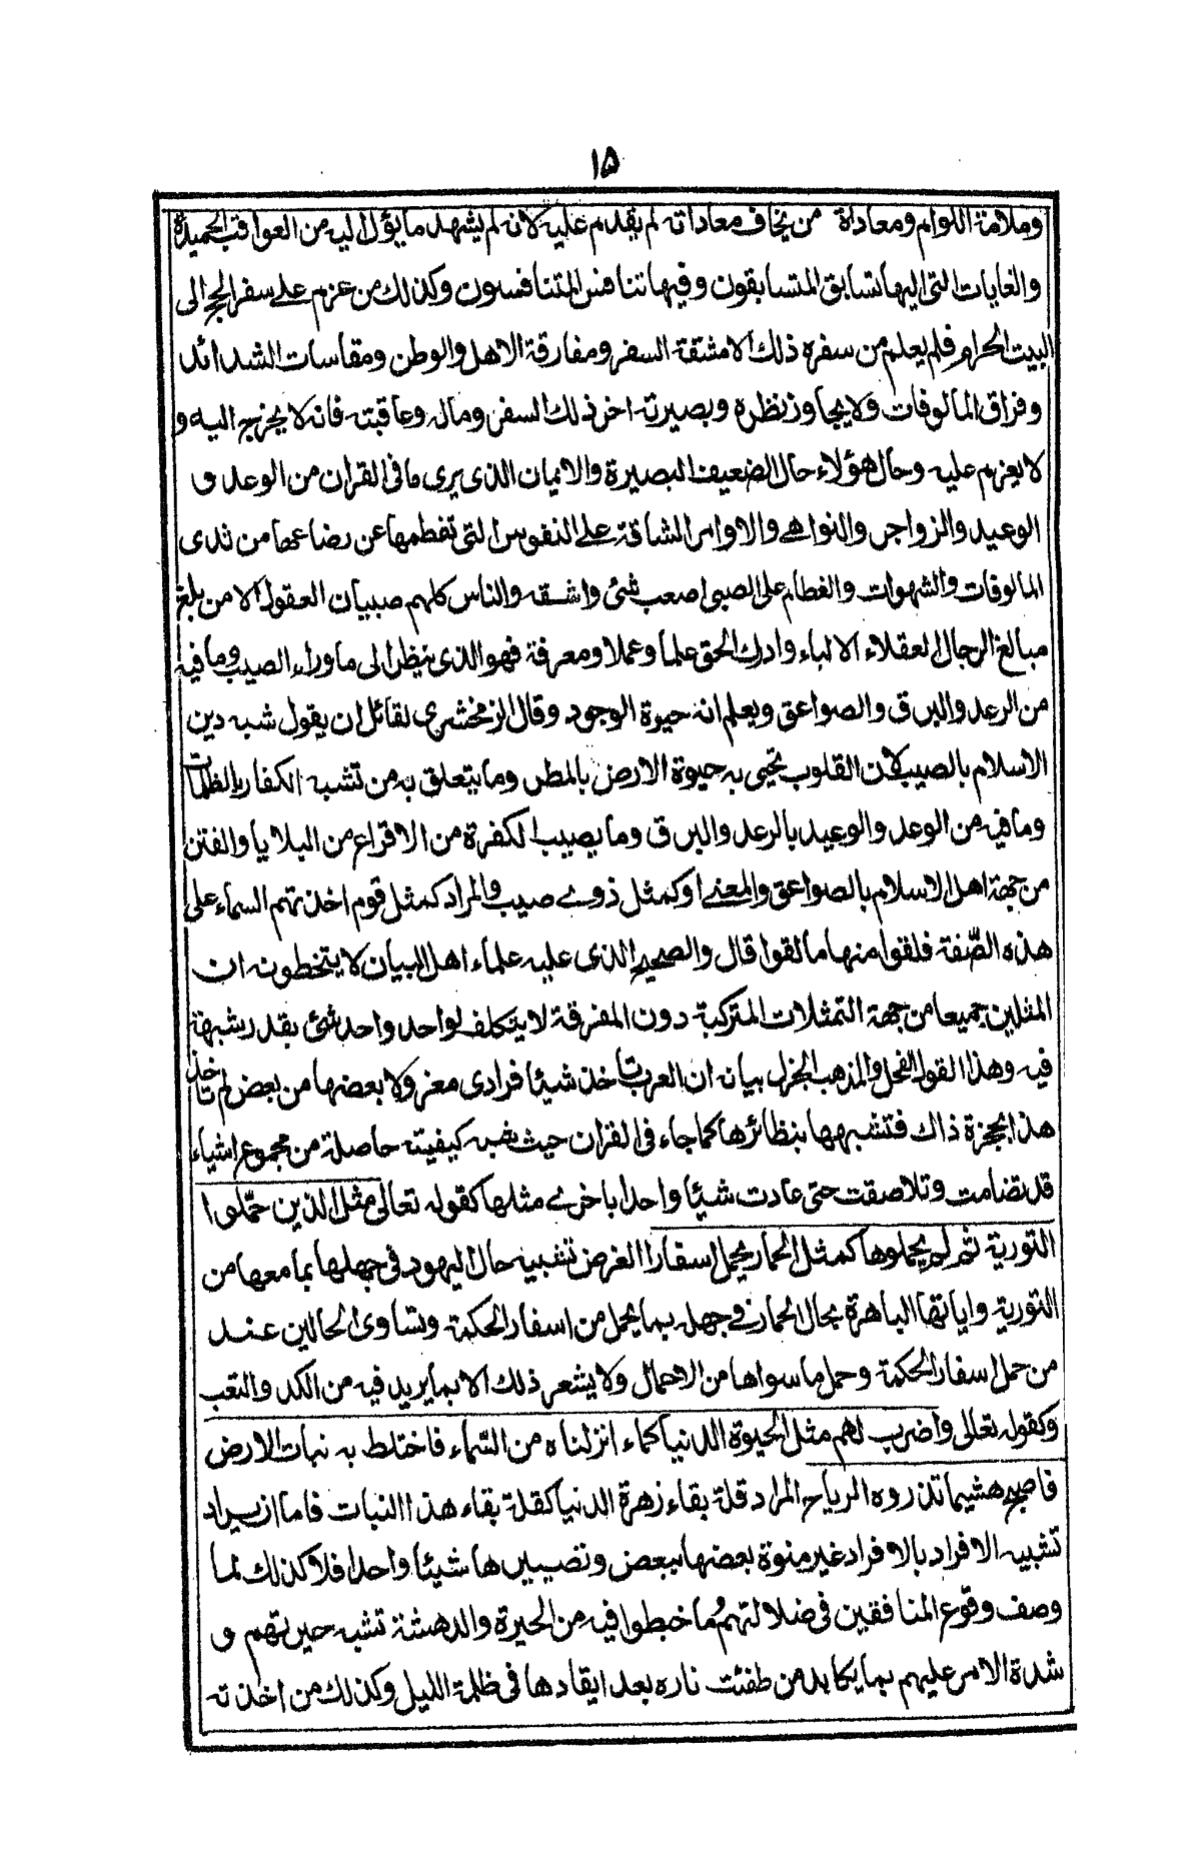 ١٥
وملامة اللوام ومعاداة من يخاف معاداته لم يقدم عليه لانه لم يشهد ما يؤل اليه من العواقب الحميدة
والغايات التى اليها تسابق المتسابقون وفيها تنافس المتنافسون وكذلك من عزم على سفر الحج الى
البيت الحرام فلم يعلم من سفره ذلك الا مشقة السفر ومفارقة الاهل والوطن ومقاسات الشدائد
وفراق المالوفات ولا يجاوز نظره وبصيرته اخر ذلك السفر وماله وعاقبته فانه لا يخرج اليه و
لا يعزم عليه وحال هؤلاء حال الضعيف البصيرة والايمان الذى يرى ما فى القران من الوعد و
الوعيد والزواجر والنواهى والاوامر الشاقة على النفوس التى تفطمها عن رضاعها من ثدى
المالوفات والشهوات والفطام على الصبى اصعب شئ واشقه والناس كلهم صبيان العقول الا من بلغ
مبالغ الرجال العقلاء الالباء وادرك الحق علما وعملا ومعرفة فهو الذى ينظر الى ما وراء الصيب وما فيه
من الرعد والبرق والصواعق ويعلم انه حيوة الوجود وقال الزمخشرى لقائل ان يقول شبه دين
الاسلام بالصيب لان القلوب تحيى به حيوة الارض بالمطر وما يتعلق به من تشبه الكفار بالظلمات
وما فيه من الوعد والوعيد بالرعد والبرق وما يصيب الكفرة من الاقراع من البلايا والفتن
من جهة اهل الاسلام بالصواعق والمعنى او كمثل ذوى صيب والمراد كمثل قوم اخذتهم السماء على
هذه الصّفة فلقوا منها ما لقوا قال والصحيح الذى عليه علماء اهل البيان لا يتخطونه ان
المثلين جميعا من جهة التمثلات المتركبة دون المفرقة لا يتكلف لواحد واحد شئ بقدر شبهة
فيه وهذا القول الفحل والمذهب الجزل بيانه ان العرب تاخذ شيئا فرادى معز ولا بعضها من بعض لم تاخذ
هذا بحجزة ذاك فتشبهها بنظائرها كما جاء فى القران حيث يشبه كيفيته حاصلة من مجموع اشياء
قد تضامت وتلاصقت حتى عادت شيئا واحدا باخرى مثلها كقوله تعالى مثل الذين حمّلوا ا
التورية ثم لم يحملوها كمثل الحمار يحمل اسفارا الغرض تشبيه حال اليهود فى جهلها بما معها من
التورية واياتها الباهرة بحال الحمار فى جهله بما يحمل من اسفار الحكمة وتساوى الحالين عند
من حمل اسفار الحكمة وحمل ما سواها من الاحمال ولا يشعر ذلك الا بما يريد فيه من الكد والتعب
وكقوله تعالى واضرب لهم مثل الحيوة الدنيا كماء انزلناه من السّماء فاختلط به نبات الارض
فاصبح هشيما تذروه الرياح المراد قلة بقاء زهرة الدنيا كقلة بقاء هذا النبات فاما ان يراد
تشبيه الافراد بالافراد غير منوة بعضها ببعض وتصييرها شيئا واحدا فلا كذلك لما
وصف وقوع المنافقين فى ضلالتهم وما خبطوا فيه من الحيرة والدهشة تشبه حيرتهم و
شدة الامر عليهم بما يكابد من طفئت ناره بعد ايقادها فى ظلمة الليل وكذلك من اخذته